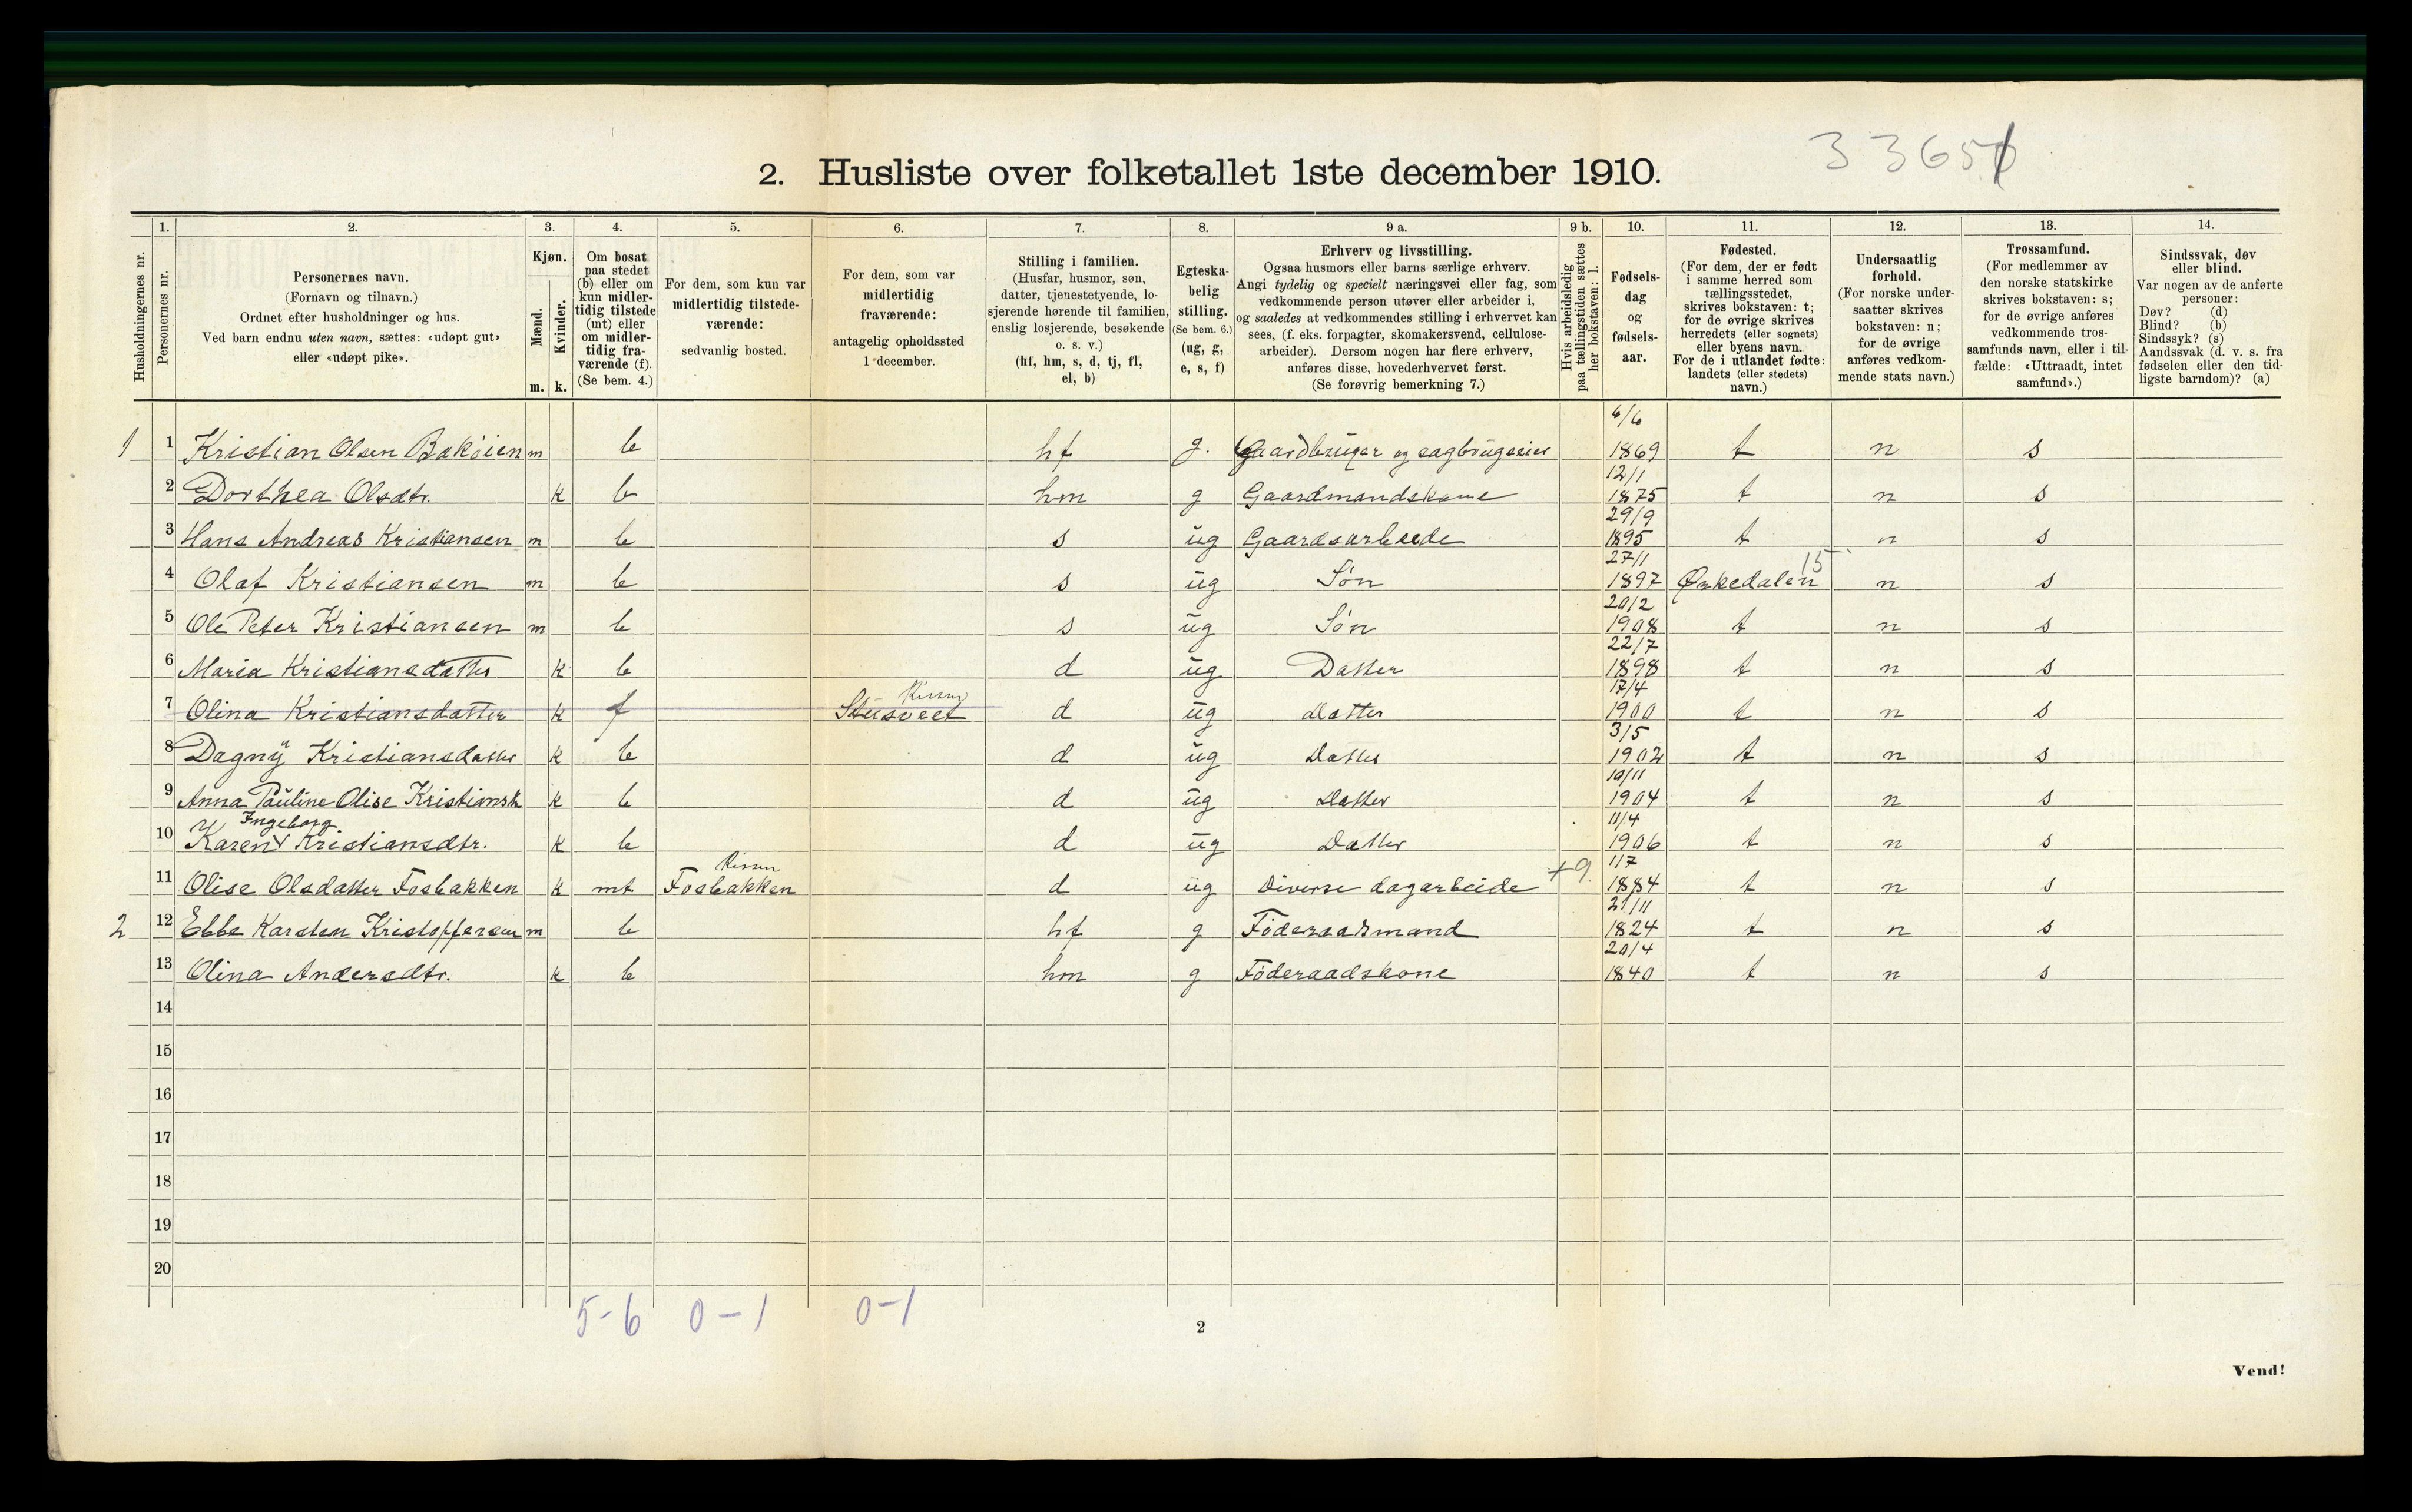 33651
2. Husliste over folketallet 1ste december 1910.
Husholdningernes nr.
1. Personernes nr.
2. Personernes navn. (Fornavn og tilnavn.) Ordnet efter husholdninger og hus. Ved barn endnu uten navn, sættes: «udøpt gut» eller «udøpt pike».
3. Kjøn. Mænd. m. Kvinder. k.
4. Om bosat paa stedet (b) eller om kun midlertidig tilstede (mt) eller om midlertidig fraværende (f). (Se bem. 4.)
5. For dem, som kun var midlertidig tilstedeværende: sedvanlig bosted.
6. For dem, som var midlertidig fraværende: antagelig opholdssted 1 december.
7. Stilling i familien. (Husfar, husmor, søn, datter, tjenestetyende, losjerende hørende til familien, enslig losjerende, besøkende o. s. v.) (hf, hm, s, d, tj, fl, el, b)
8. Egteskabelig stilling. (Se bem. 6.) (ug, g, e, s, f)
9 a. Erhverv og livsstilling. Ogsaa husmors eller barns særlige erhverv. Angi tydelig og specielt næringsvei eller fag, som vedkommende person utøver eller arbeider i, og saaledes at vedkommendes stilling i erhvervet kan sees, (f. eks. forpagter, skomakersvend, cellulosearbeider). Dersom nogen har flere erhverv, anføres disse, hovederhvervet først. (Se forøvrig bemerkning 7.)
9 b. Hvis arbeidsledig paa tællingstiden sættes her bokstaven: l.
10. Fødselsdag og fødselsaar.
11. Fødested. (For dem, der er født i samme herred som tællingsstedet, skrives bokstaven: t; for de øvrige skrives herredets (eller sognets) eller byens navn. For de i utlandet fødte: landets (eller stedets) navn.)
12. Undersaatlig forhold. (For norske undersaatter skrives bokstaven: n; for de øvrige anføres vedkommende stats navn.)
13. Trossamfund. (For medlemmer av den norske statskirke skrives bokstaven: s; for de øvrige anføres vedkommende trossamfunds navn, eller i tilfælde: «Uttraadt, intet samfund».)
14. Sindssvak, døv eller blind. Var nogen av de anførte personer: Døv? (d) Blind? (b) Sindssyk? (s) Aandssvak (d. v. s. fra fødselen eller den tidligste barndom)? (a)
1 1 Kristian Olsen Bakøien m b hf g. Gaardbruger og sagbrugseier 6/6 1869 t n s
2 Dorthea Olsdtr. k b hm g Gaardmandskone 12/1 1875 t n s
3 Hans Andreas Kristiansen m b s ug Gaardsarbeide 29/9 1895 t n s
4 Olaf Kristiansen m b s ug Søn 27/1 1897 Ørkedalen 15 n s
5 Ole Peter Kristiansen m b s ug Søn 20/2 1908 t n s
6 Maria Kristiansdatter k b d ug Datter 22/7 1898 t n s
7 Olina Kristiansdatter k f d ug Datter 17/4 1900 t n s
8 Dagny Kristiansdatter k b d ug Datter 3/5 1902 t n s
9 Anna Pauline Olise Kristiansdt k b d ug Datter 10/11 1904 t n s
10 Karen Ingeborg Kristiansdtr. k b d ug Datter 11/4 1906 t n s
11 Olise Olsdatter Fosbakken k mt Fosbakken Rissen d ug Diverse dagarbeide +9. 1/7 1884 t n s
2 12 Ebbe Karsten Kristoffersen m b hf g Føderaadsmand 21/11 1824 t n s
13 Olina Andersdtr. k b hm g Føderaadskone 20/4 1840 t n s
14
15
16
17
18
19
20
5-6 0-1 0-1
2
Vend!